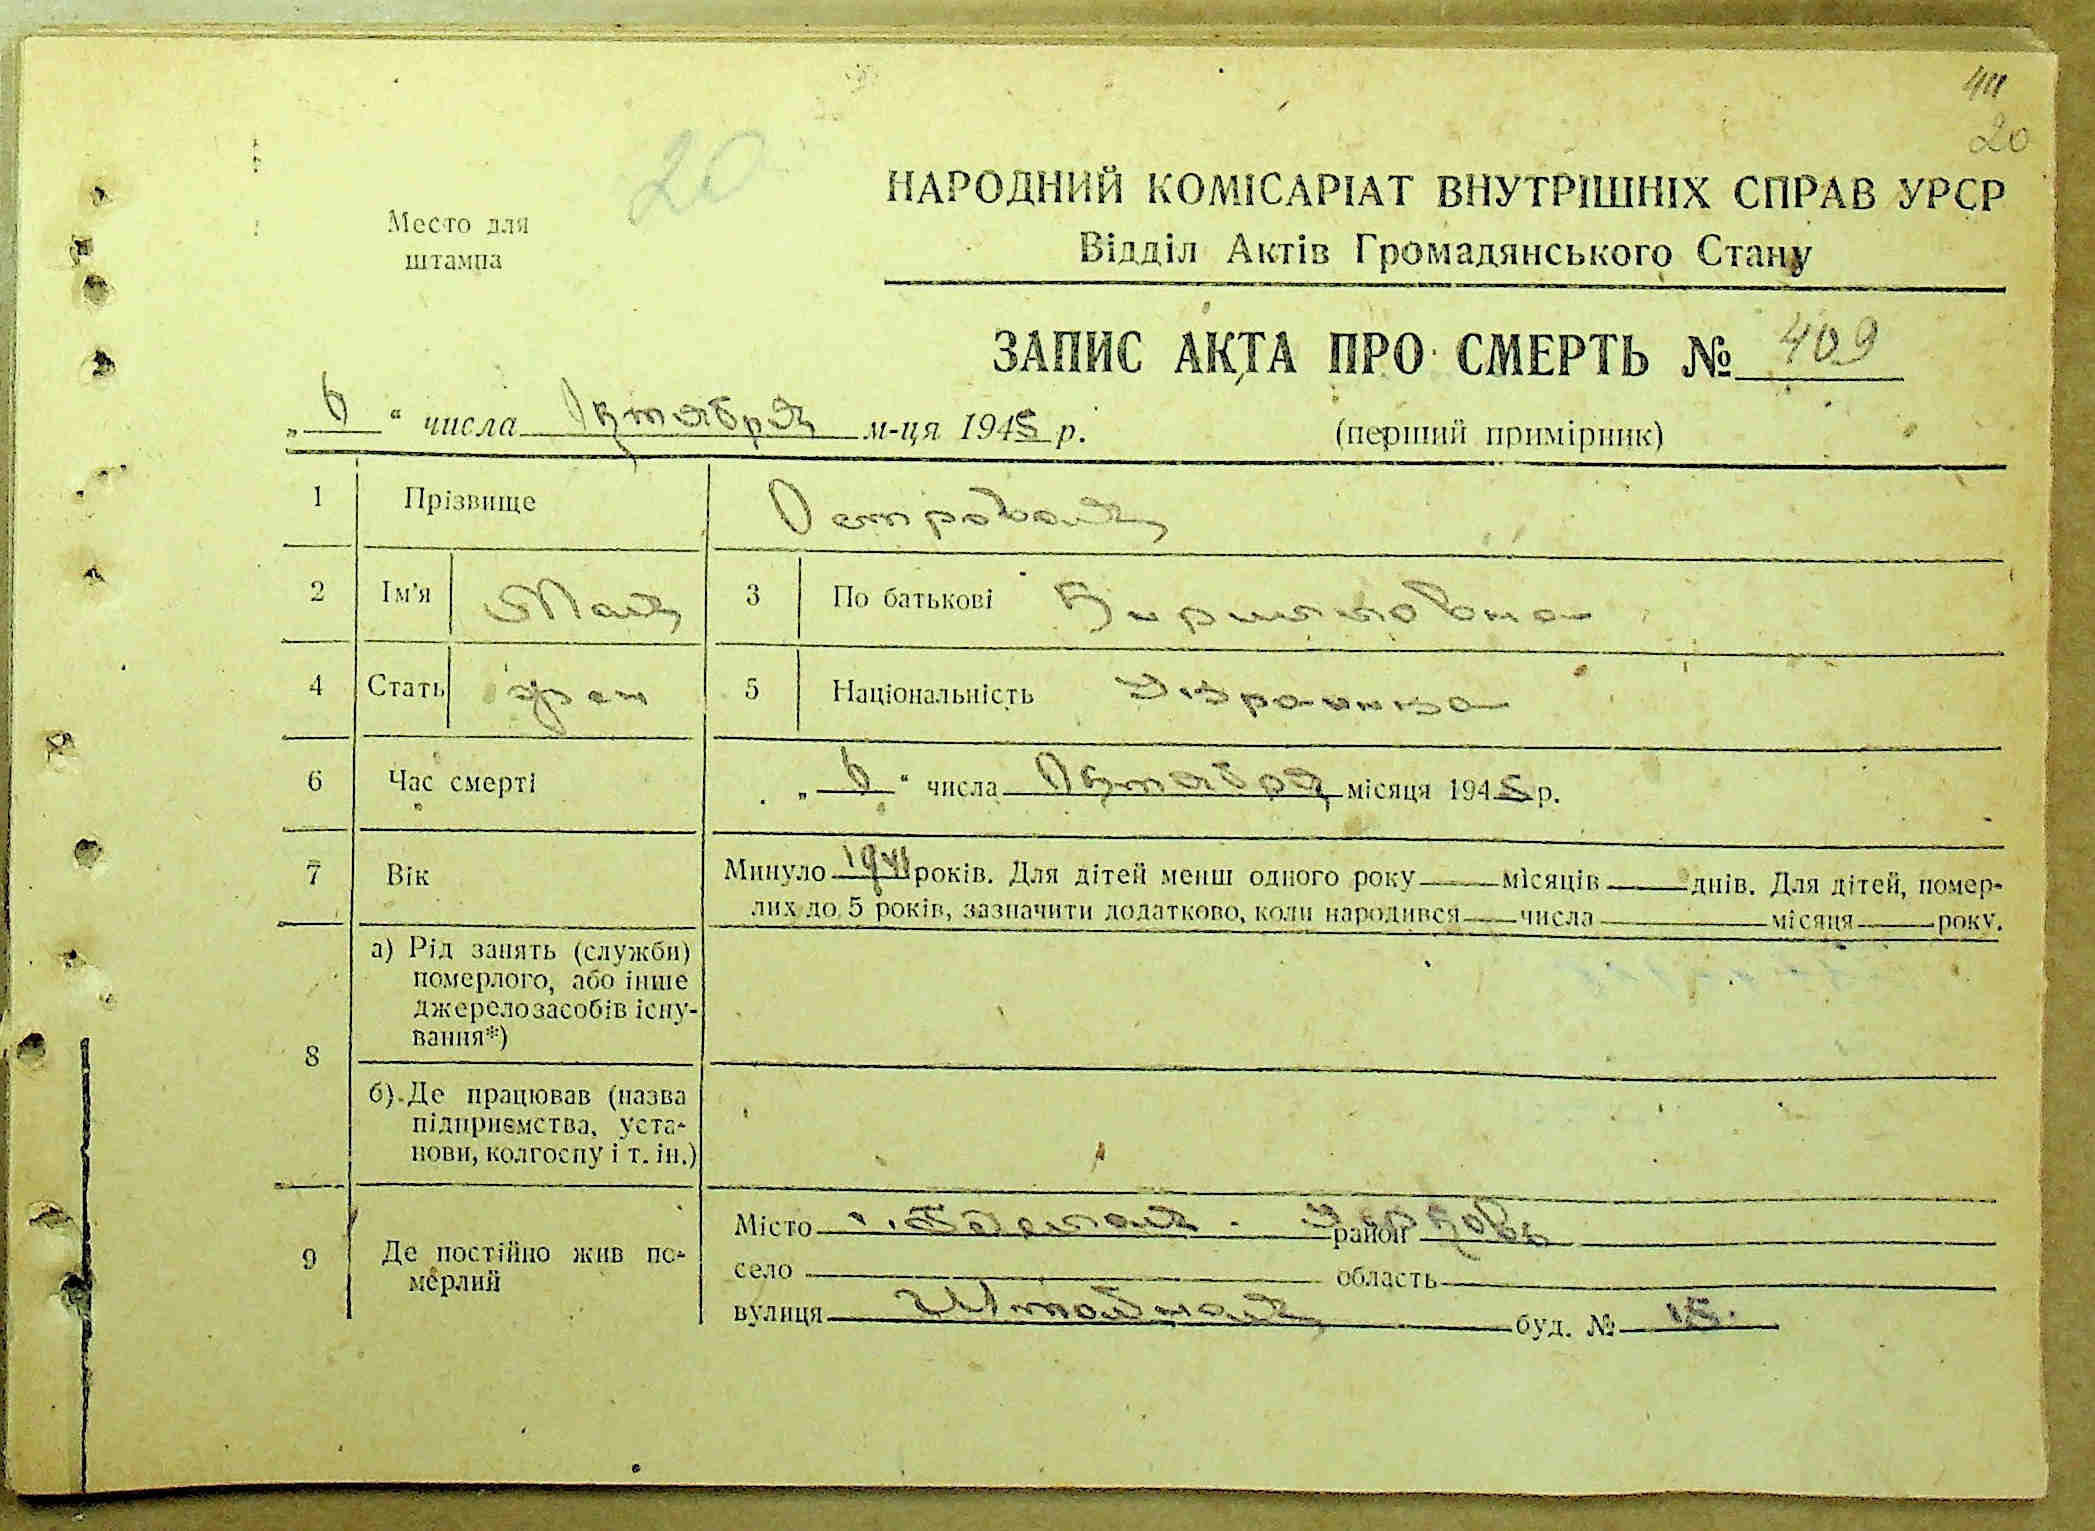 411
20
20
Место для
штампа
НАРОДНИЙ КОМІСАРІАТ ВНУТРІШНІХ СПРАВ УРСР
Відділ Актів Громадянського Стану
ЗАПИС АКТА ПРО СМЕРТЬ № 409
„6“ числа Октября м-ця 1945 р.
(перший примірник)
1 Прізвище Островая
2 Ім'я Мая 3 По батькові Кирилловна
4 Стать жен 5 Національність Украинка
6 Час смерті „6“ числа Октября місяця 1945 р.
7 Вік Минуло 1941 років. Для дітей менш одного року місяців днів. Для дітей, помер-
лих до 5 років, зазначити додатково, коли народився числа місяця року.
8 а) Рід занять (служби)
померлого, або інше
джерело засобів існу-
вання*)
б) Де працював (назва
підприємства, уста-
нови, колгоспу і т. ін.)
9 Де постійно жив по-
мерлий
Місто район
село область
вулиця буд. № 15.